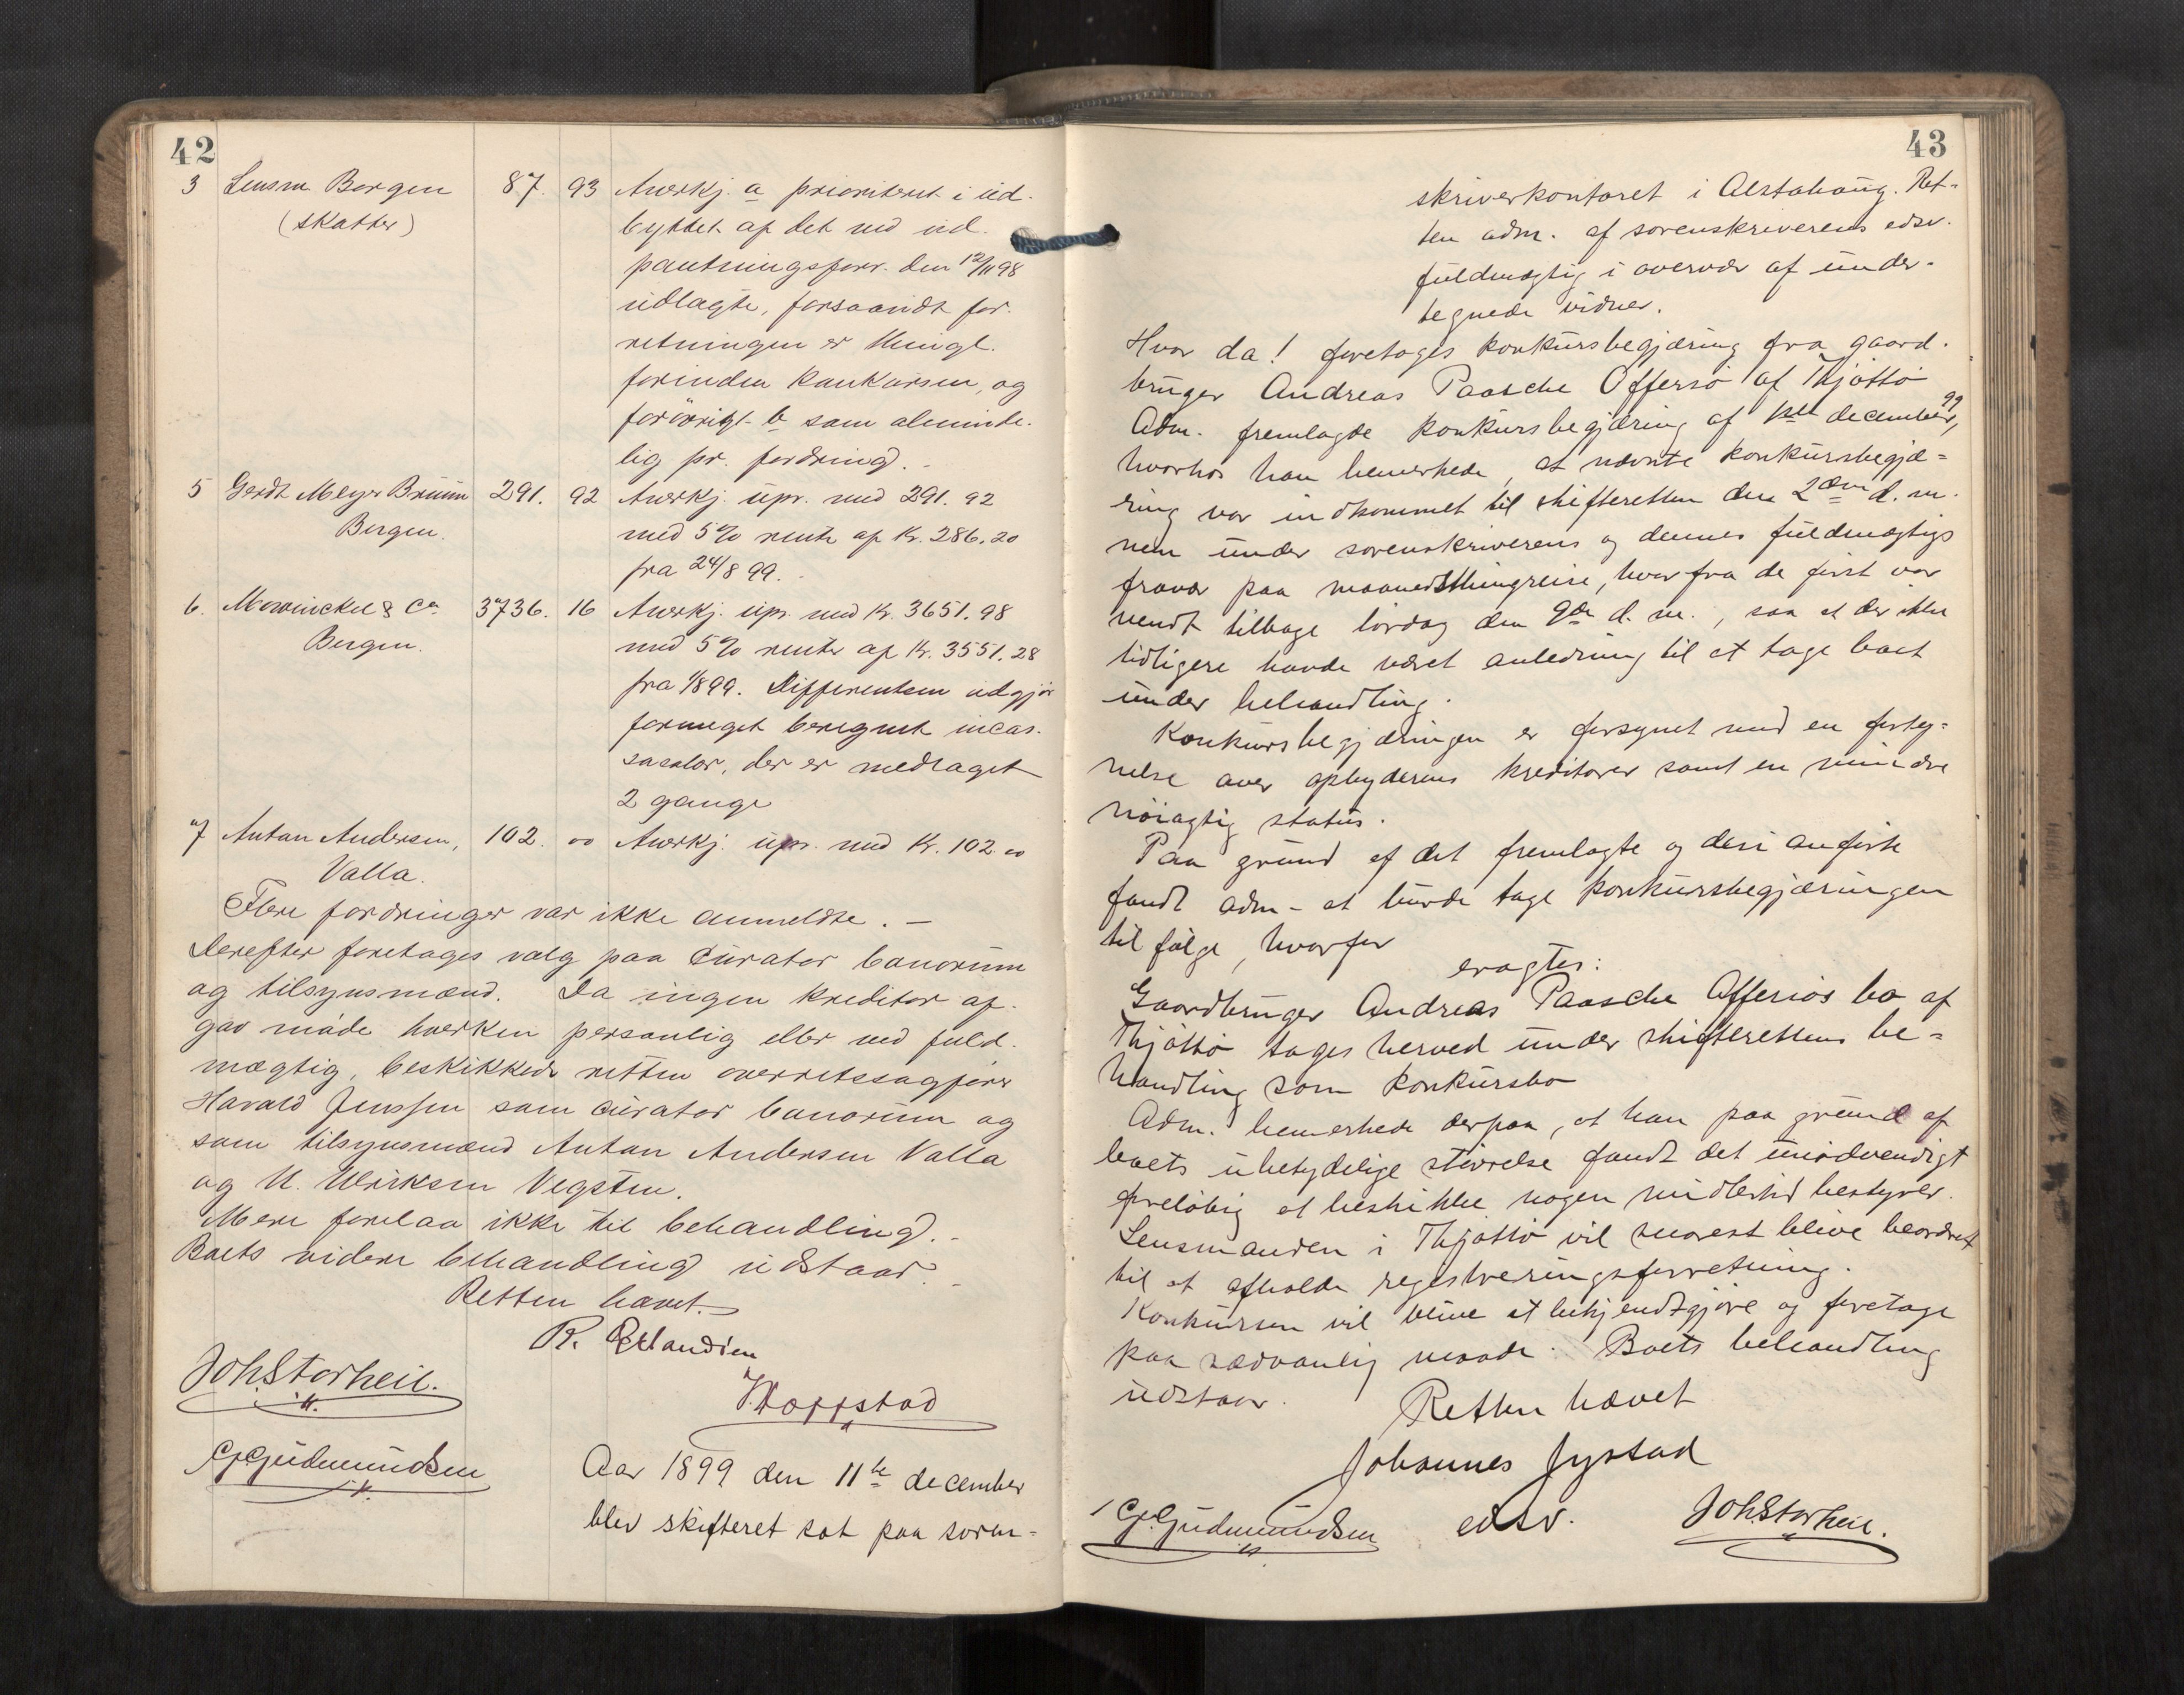 42
3 Lensm Borgen 87. 93 Anerkj. a prioriteret i ud-
(skatter) byttet af det ved ud-
pantningsforr. den 12/11 98
udlagte, forsaavidt for-
retningen er thingl.
forinden konkursen, og
forøvrigt b som alminde-
lig pr. fordring. -
5 Gerdt Meyer Bruun 291. 92 Anerkj. upr. med 291. 92
Bergen. med 5% rente af Kr. 286.20
fra 24/8 99.
6. Mowinckel & Co 3736. 16 Anerkj. upr. med Kr. 3651.98
Bergen. med 5% rente af Kr. 3551.28
fra 1/8 99. Differentsen udgjør
formeget beregnet incas-
sasalør, der er medtaget
2 gange
7 Anton Andersen, 102. 00 Anerkj. upr. med Kr. 102.00
Valla.
Flere fordringer var ikke anmeldte. -
Derefter foretages valg paa curator bonorum
og tilsynsmænd. Da ingen kreditor af-
gav møde hverken personlig eller ved fuld-
mægtig, beskikkede retten overretssagfører
Harald Jenssen som curator bonorum og
som tilsynsmænd Anton Andersen Valla
og U. Ulriksen Vegsten.
Mere forelaa ikke til behandling. -
Boets videre behandling udstaar. -
Retten hævet.
R. Erlandsen
Joh. Storheil.
Woppstad
G. Gudmundsen
Aar 1899 den 11te december
blev skifteret sat paa soren-
43
skriverkontoret i Alstahaug. Ret-
ten adm. af sorenskriverens edsv.
fuldmægtig i overvær af under-
tegnede vidner.
Hvor da! foretoges konkursbegjæring fra gaard-
bruger Andreas Paasche Offersø af Thjøttø
Adm. fremlagde konkursbegjæring af 1ste december 99,
hvorhos han bemerkede, at nævnte konkursbegjæ-
ring var indkommet til skifteretten den 2den d. m.
men under sorenskriverens og dennes fuldmægtigs
fravær paa maanedsthingreise, hvorfra de først var
vendt tilbage lørdag den 9de d. m., saa at der ikke
tidligere havde været anledning til at tage boet
under behandling.
Konkursbegjæringen er forsynet med en forteg-
nelse over opbyderens kreditorer samt en mindre
nøiagtig status.
Paa grund af det fremlagte og deri anførte
fandt adm- at burde tage konkursbegjæringen
til følge, hvorfor
eragtes:
Gaardbruger Andreas Paasche Offersøs bo af
Thjøttø tages herved under skifterettens be-
handling som konkursbo
Adm. bemerkede derpaa, at han paa grund af
boets ubetydelige størrelse fandt det unødvendigt
foreløbig at beskikke nogen midlertid bestyrer.
Lensmanden i Thjøttø vil snarest blive beordret
til at afholde registreringsforretning.
Konkursen vil blive at bekjendtgjøre og foretage
paa sædvanlig maade. Boets behandling
udstaar.
Retten hævet
Johannes Jystad
edsv.
G. Gudmundsen
Joh. Storheil.